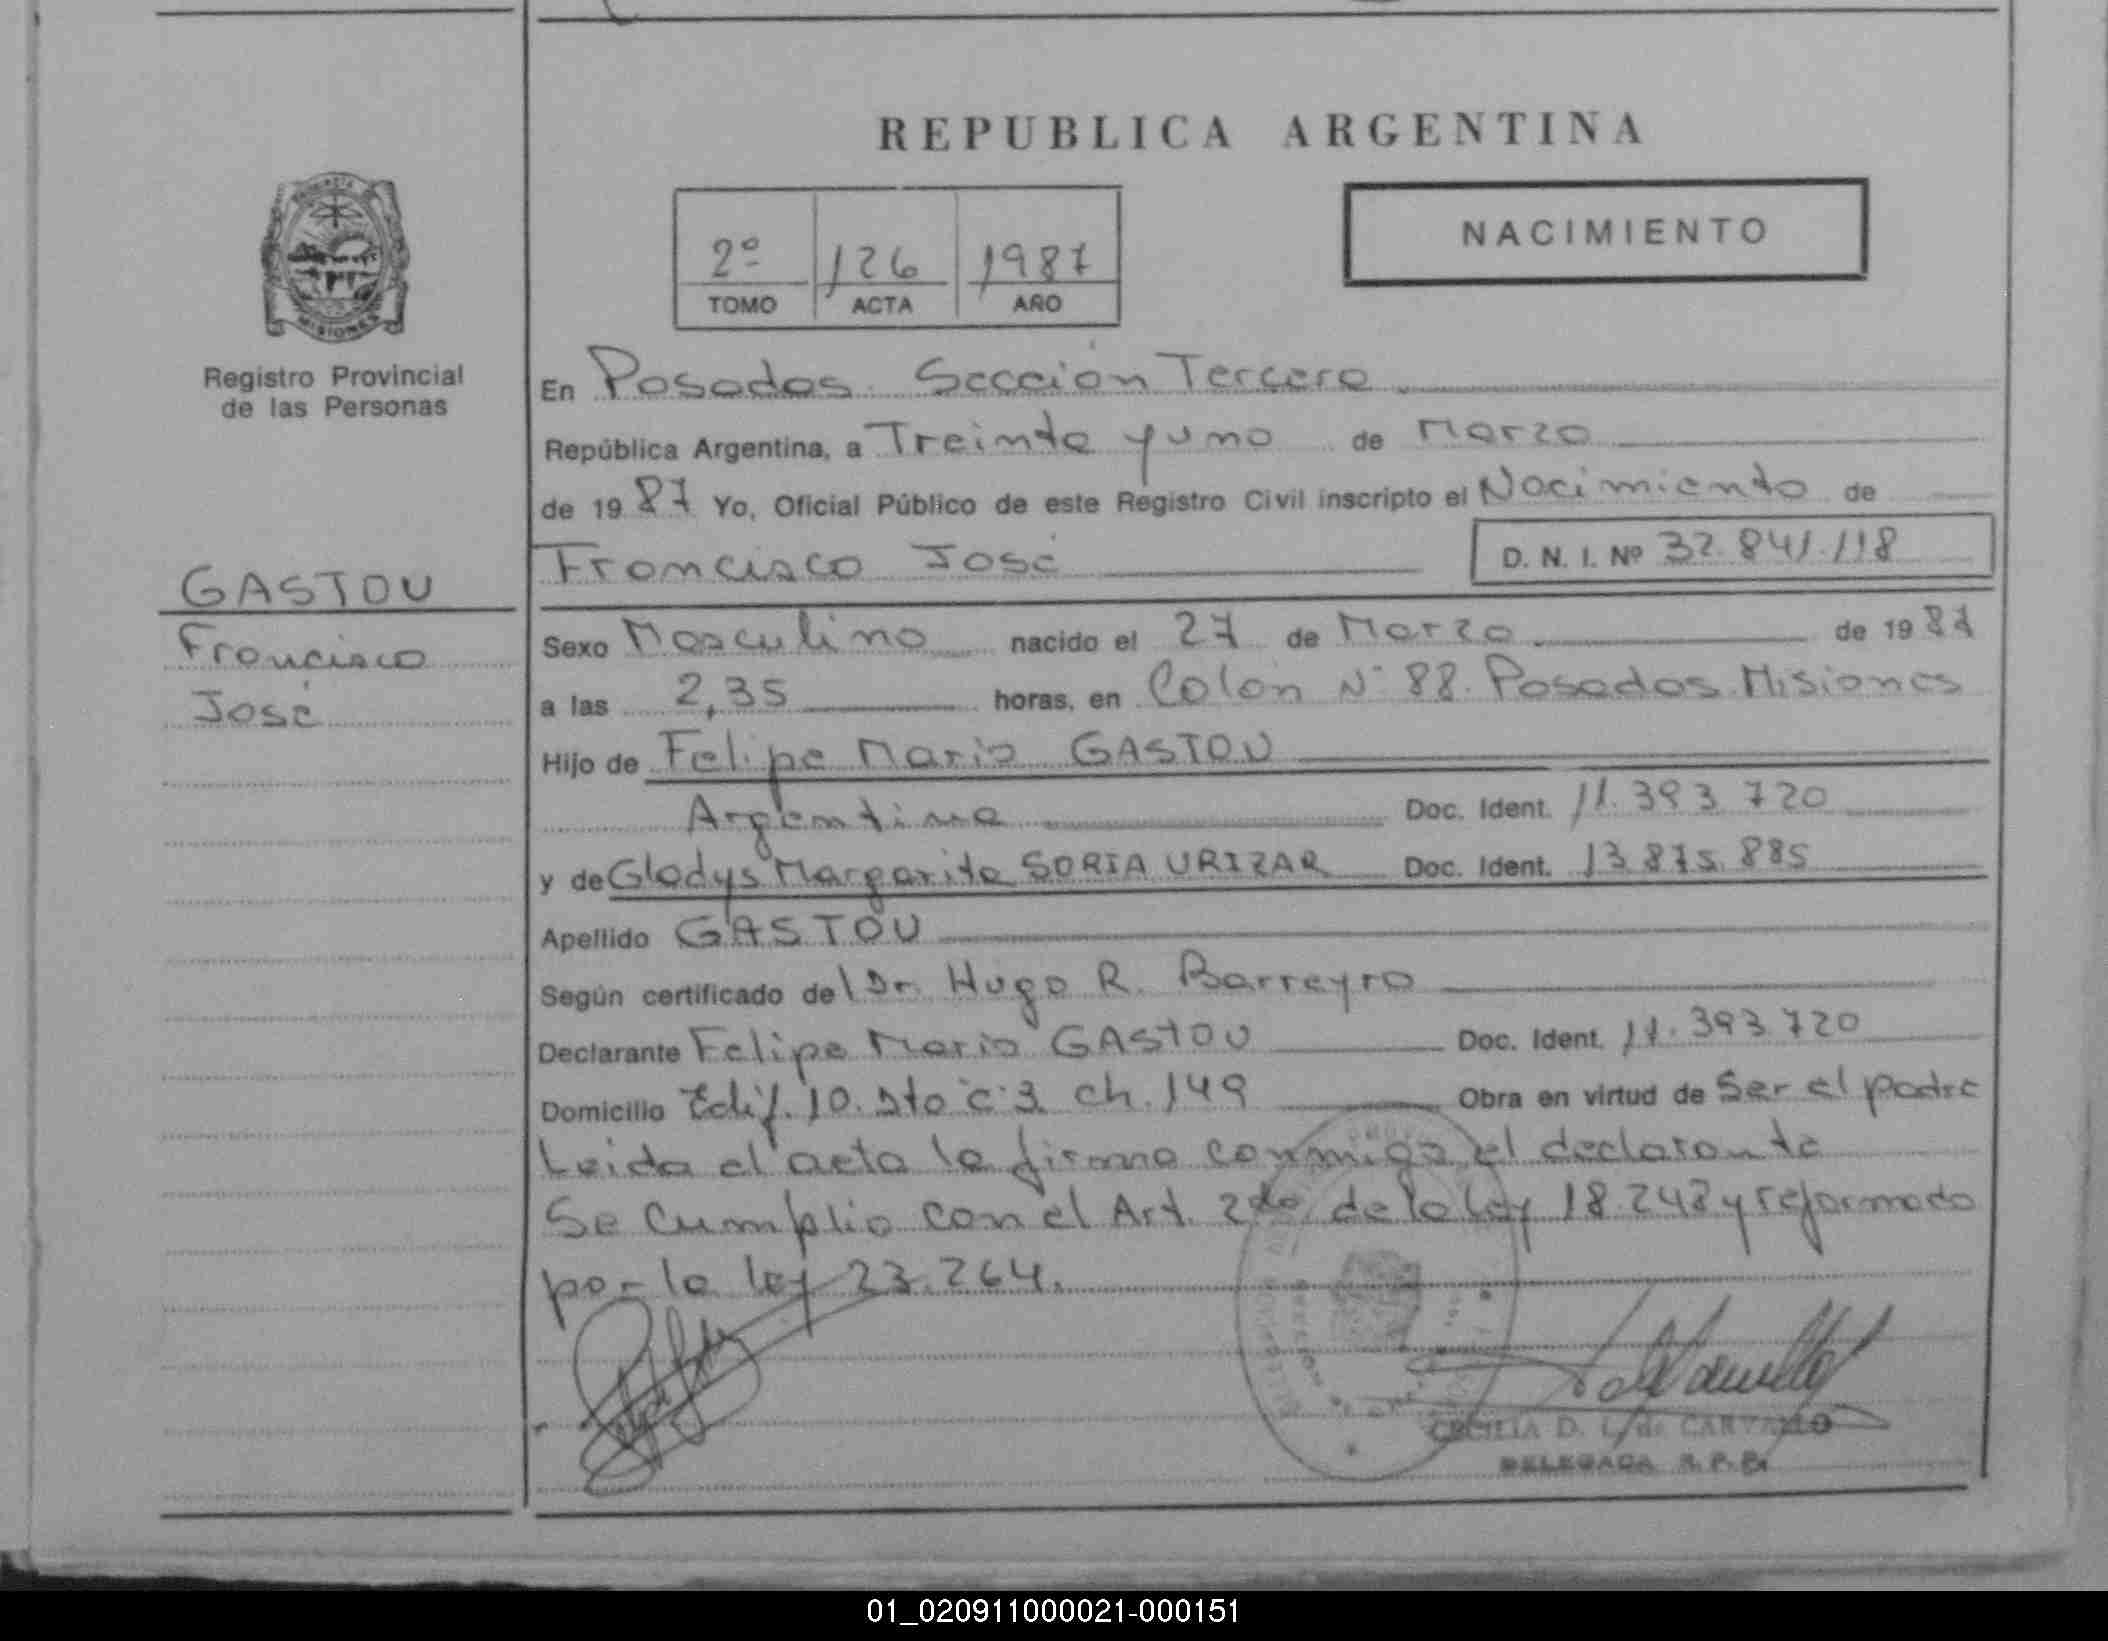 REPUBLICA ARGENTINA
NACIMIENTO
2º 126 1987
TOMO ACTA AÑO
MISIONES
Registro Provincial
de las Personas
GASTOU
Francisco
José
En Posadas. Sección Tercera
República Argentina, a Treinta y uno de Marzo
de 1987 Yo, Oficial Público de este Registro Civil inscripto el Nacimiento de
Francisco José D. N. I. Nº 32.841.118
Sexo Masculino nacido el 27 de Marzo de 1987
a las 2,35 horas, en Colón Nº 88. Posadas. Misiones
Hijo de Felipe Mario GASTOU
Argentina Doc. Ident. 11.393.720
y de Gladys Margarita SORIA URIZAR Doc. Ident. 13.875.885
Apellido GASTOU
Según certificado del Dr. Hugo R. Barreyro
Declarante Felipe Mario GASTOU Doc. Ident. 11.393.720
Domicilio Edif. 10. Dto "C" 3 ch. 149 Obra en virtud de Ser el padre
Leida el acta la firma conmigo el declarante
Se cumplio con el Art. 2do de la ley 18.248 y reformado
por la ley 23.264.
CECILIA D. L. de CARVALLO
DELEGADA R. P. P.
01_020911000021-000151